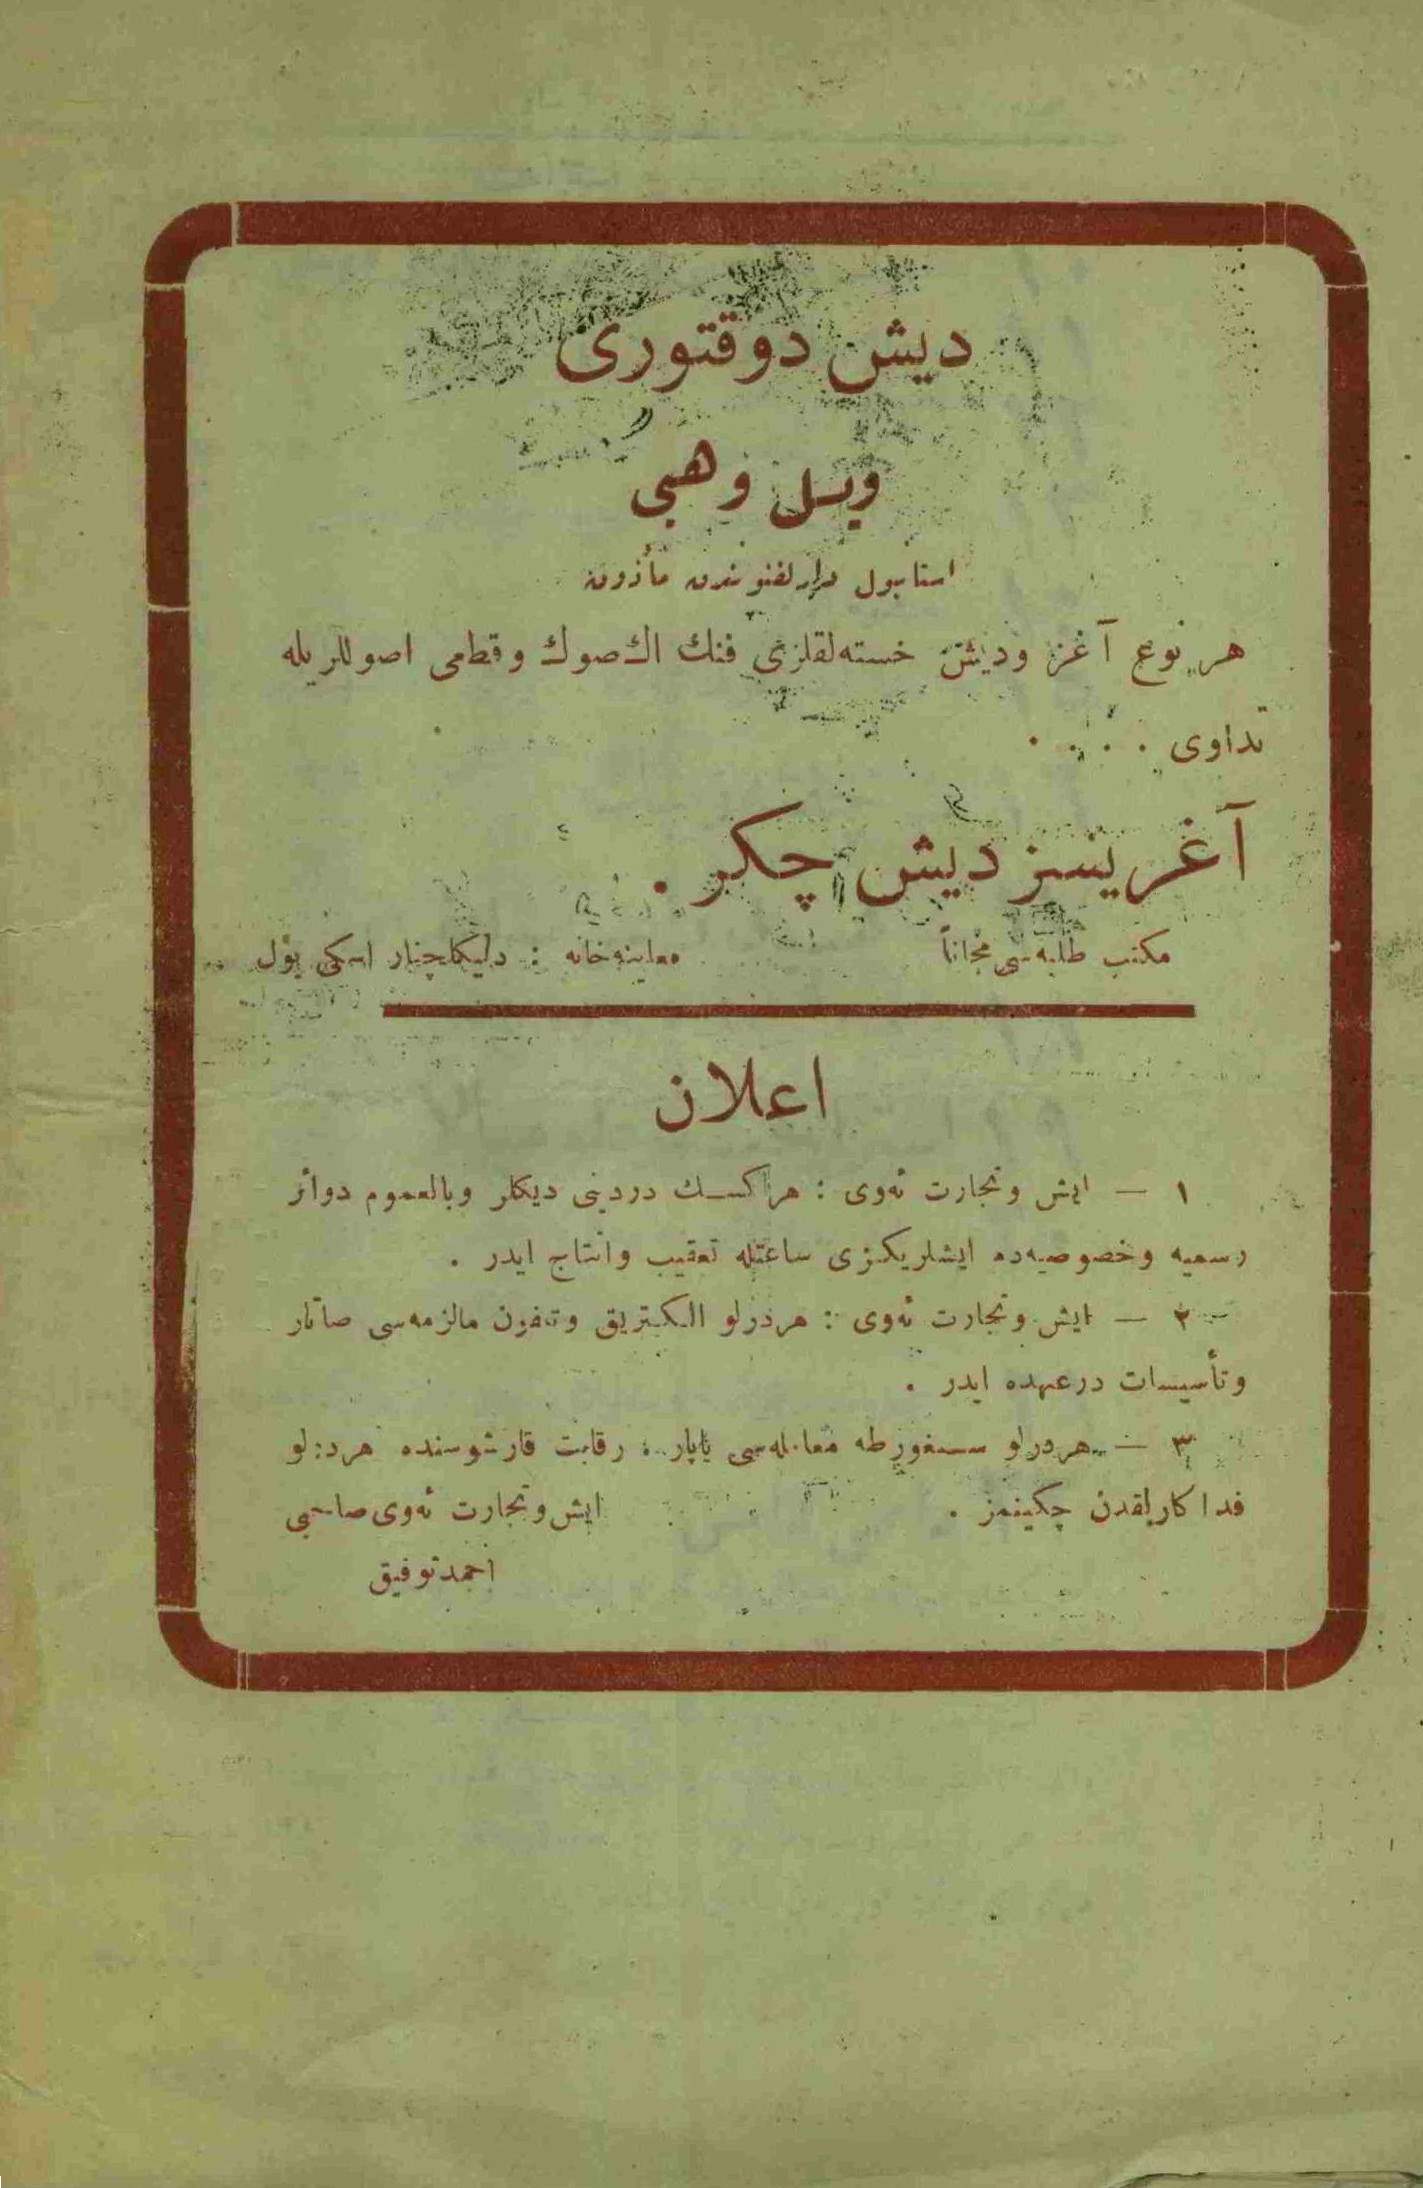 دیش دوقتوری
ویسل وهبی
استانبول دارلفنوندن مأذون
هر نوع آغز ودیش خسته‌لقلری فنك اڭ صوڭ وقطعی اصوللریله
تداوی . . . .
آغریسز دیش چكر .
مكتب طلبه‌سی مجاناً
معاینه‌خانه : دلیكلیچنار اسكی یول
اعلان
۱ — ایش وتجارت ئه‌وی : هركسك دردینی دیكلر وبالعموم دوائر
رسمیه وخصوصیه‌ده ایشلریكزی ساعتله تعقیب وانتاج ایدر .
۲ — ایش وتجارت ئه‌وی : هردرلو الكتریق وتلفون مالزمه‌سی صاتار
وتأسیسات درعهده ایدر .
۳ — هردرلو سیغورطه معامله‌سی یاپار . رقابت قارشوسنده هردرلو
فداكارلقدن چكینمز .
ایش وتجارت ئه‌وی صاحبی
احمد توفیق